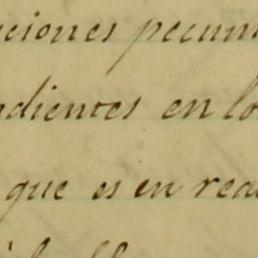 ciones pecuni
ndientes en lo
que es en rea